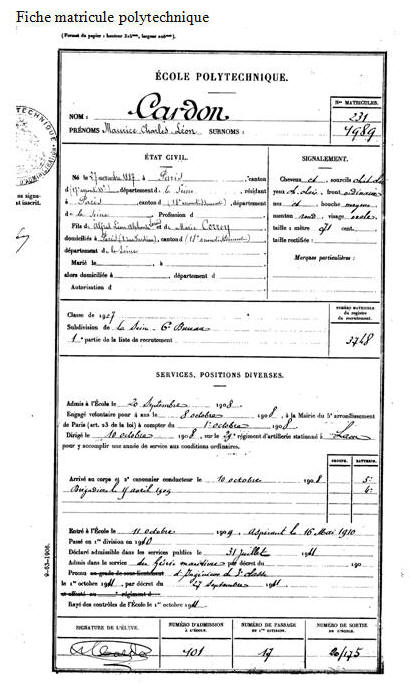 Fiche matricule polytechnique
(Format du papier : hauteur 315mm, largeur 206mm.)
ÉCOLE POLYTECHNIQUE.
NOM : Cardon
PRÉNOMS Maurice Charles Léon SURNOMS :
Nos MATRICULES.
231
1989
ÉTAT CIVIL.
Né le 27 novembre 1887 à Paris canton
d département de la Seine, résidant
à Paris, canton d (18e arrondissement) département
de la Seine Profession d
Fils de Alfred Léon et de Marie
domiciliés à Paris canton d (18e arrondissement)
département de la Seine
Marié le à
alors domiciliée à , département d
Autorisation d
SIGNALEMENT.
Cheveux ch, sourcils
yeux , front ordinaire
nez , bouche moyenne
menton rond, visage ovale
taille : mètre 71 cent.
taille rectifiée :
Marques particulières :
Classe de 1907
Subdivision de la Seine 6e Bureau
1e partie de la liste de recrutement
NUMÉRO MATRICULE
du registre
de recrutement.
3748
SERVICES, POSITIONS DIVERSES.
Admis à l'École le 20 Septembre 1908
Engagé volontaire pour 4 ans le 8 octobre 1908, à la Mairie du 5e arrondissement
de Paris (art. 23 de la loi) à compter du 1er octobre 1908
Dirigé le 10 octobre 1908, sur le 29e régiment d'artillerie stationné à Laon
pour y accomplir une année de service aux conditions ordinaires.
GROUPE. BATTERIE.
Arrivé au corps et 2e canonnier conducteur le 10 octobre 1908 5e
Brigadier le avril 1909 6e
Entré à l'École le 11 octobre 1909 Aspirant le 16 Mai 1910
Passé en 1re division en 1910
Déclaré admissible dans les services publics le 31 juillet 1911
Admis dans le service du Génie maritime par décret du 190
Promu d'Ingénieur de 3e classe
le 1er octobre 1911, par décret du 27 septembre 1911
Rayé des contrôles de l'École le 1er octobre 1911
9-83-1908.
SIGNATURE DE L'ÉLÈVE.
NUMÉRO D'ADMISSION
À L'ÉCOLE.
NUMÉRO DE PASSAGE
EN 1re DIVISION.
NUMÉRO DE SORTIE
DE L'ÉCOLE.
101
17
20/175